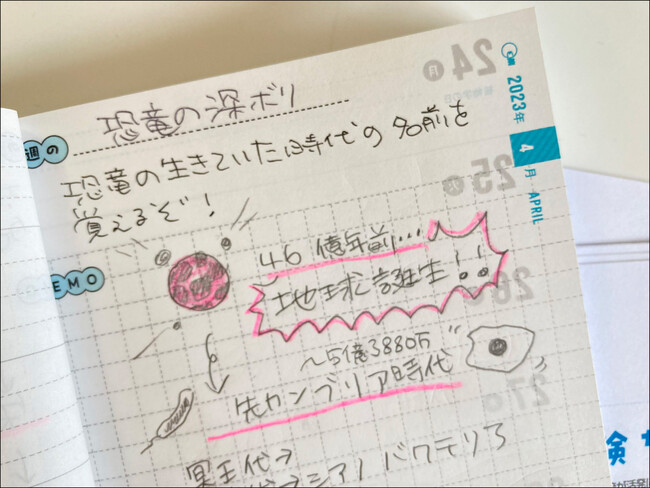 恐竜の深ボリ
週の
恐竜の生きていた時代の名前を
覚えるぞ!
EMO
46億年前…
地球誕生!!
〜5億3880万
先カンブリア時代
冥王代→
代→シアノバクテリア
2023年
4
月 APRIL
24
25
26
27
険